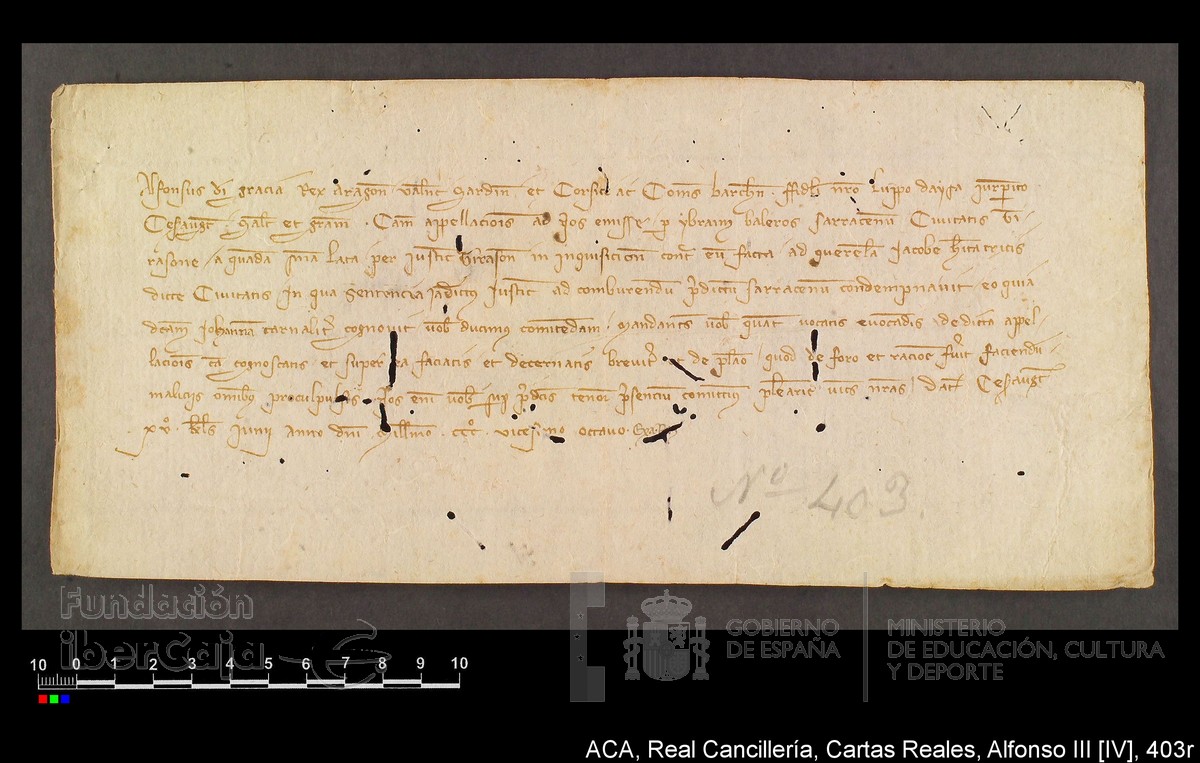 Alfonsus di gracia Rex Aragon Valent Sardin et Corsice ac Comes barchn fidel nro Luppo dayssa Jurpito
Cesaugt Salt et gram Cam appellacionis ad Nos emisse p ybraim baleros sarracenu Civitatis Ti
rasone a quada snia lata per iustic Tirason in inquisicion contra eu facta ad querela Jacobe hitatricis
dicte Civitatis in qua sentencia iadictus Justic ad comburendu pdictu sarracenu condempnavit eo quia
dcam Johannam carnalit cognovit vob ducimus comitedam mandantes vob quat vocatis evocadis de dicta appel
lacionis ca cognoscatis et super ea faciatis et decernatis brevit et de plano quod de foro et racioe fuit faciendu
maliciis omibus proculpulsis Nos eni vob sup pdcis tenor psenciu comittim plenarie vices nras Dat Cesaugt
xv kls Junii Anno dni Millmo CCC vicesimo octavo
Nº 403.
Fundación
iberCaja
GOBIERNO
DE ESPAÑA
MINISTERIO
DE EDUCACIÓN, CULTURA
Y DEPORTE
10 0 1 2 3 4 5 6 7 8 9 10
ACA, Real Cancillería, Cartas Reales, Alfonso III [IV], 403r